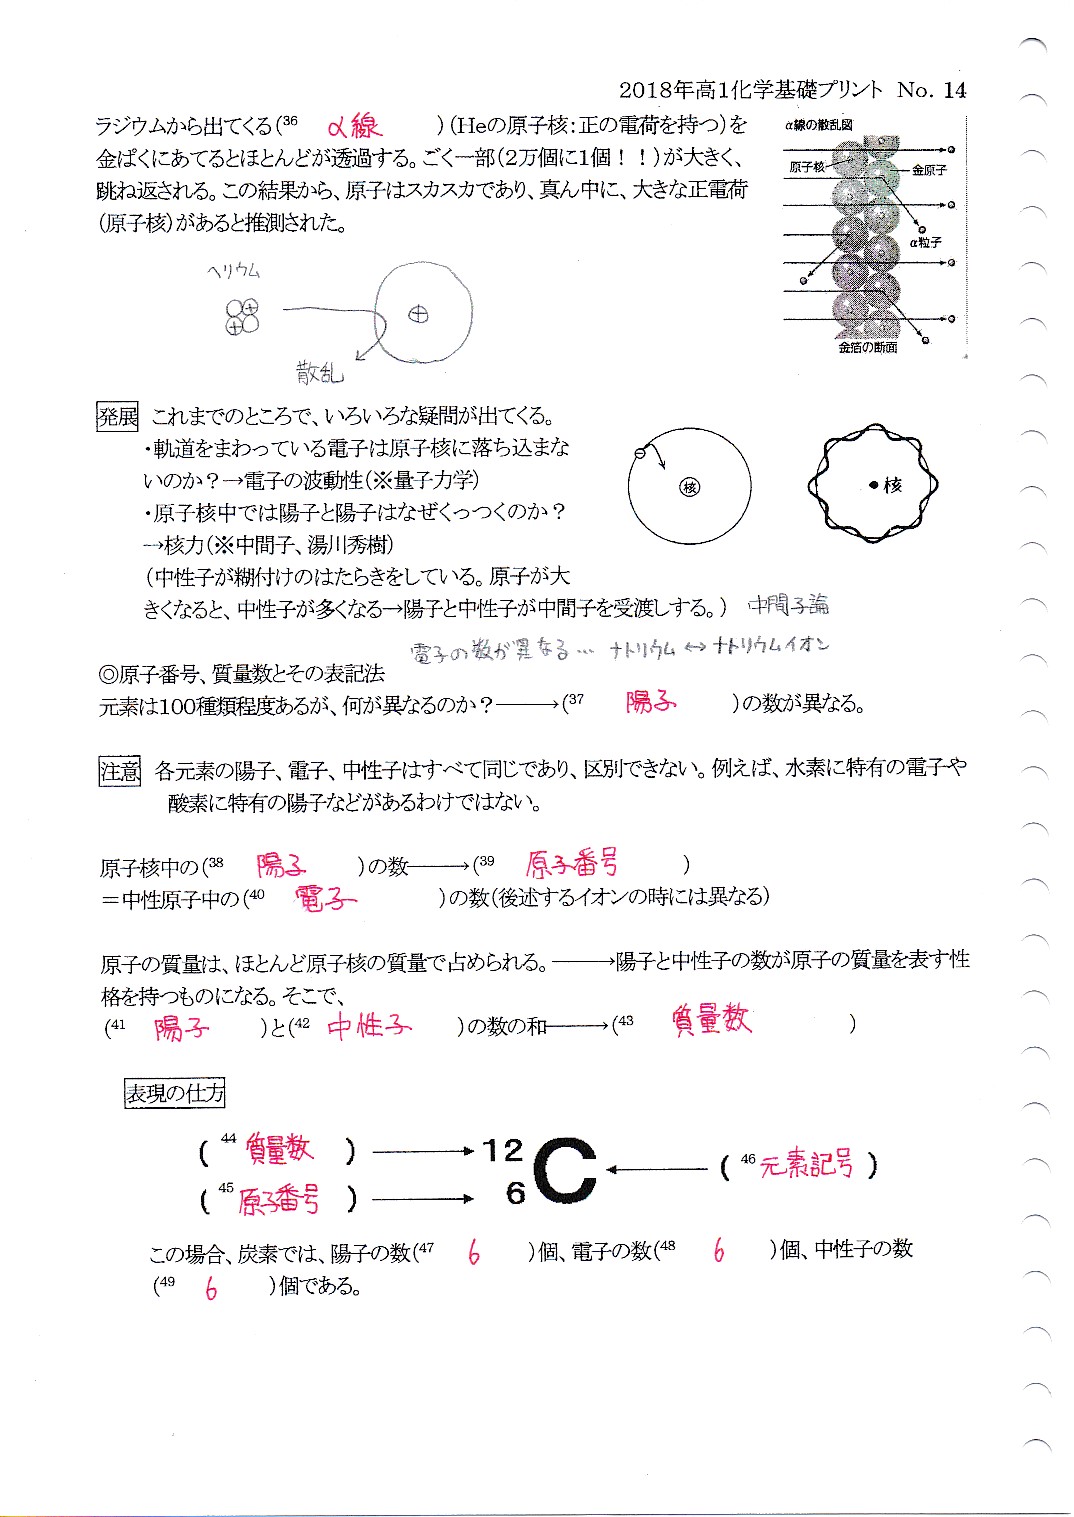 2018年高1化学基礎プリント No. 14
ラジウムから出てくる(³⁶ α線 )(Heの原子核:正の電荷を持つ)を
金ぱくにあてるとほとんどが透過する。ごく一部(2万個に1個!!)が大きく、
跳ね返される。この結果から、原子はスカスカであり、真ん中に、大きな正電荷
(原子核)があると推測された。
α線の散乱図
原子核
金原子
α粒子
金箔の断面
ヘリウム
散乱
発展 これまでのところで、いろいろな疑問が出てくる。
・軌道をまわっている電子は原子核に落ち込まな
いのか?→電子の波動性(※量子力学)
・原子核中では陽子と陽子はなぜくっつくのか?
→核力(※中間子、湯川秀樹)
(中性子が糊付けのはたらきをしている。原子が大
きくなると、中性子が多くなる→陽子と中性子が中間子を受渡しする。) 中間子論
核
核
電子の数が異なる… ナトリウム↔ナトリウムイオン
◎原子番号、質量数とその表記法
元素は100種類程度あるが、何が異なるのか?――→(³⁷ 陽子 )の数が異なる。
注意 各元素の陽子、電子、中性子はすべて同じであり、区別できない。例えば、水素に特有の電子や
酸素に特有の陽子などがあるわけではない。
原子核中の(³⁸ 陽子 )の数――→(³⁹ 原子番号 )
=中性原子中の(⁴⁰ 電子 )の数(後述するイオンの時には異なる)
原子の質量は、ほとんど原子核の質量で占められる。――→陽子と中性子の数が原子の質量を表す性
格を持つものになる。そこで、
(⁴¹ 陽子 )と(⁴² 中性子 )の数の和――→(⁴³ 質量数 )
表現の仕方
(⁴⁴ 質量数 ) → 12
C ← (⁴⁶ 元素記号 )
(⁴⁵ 原子番号 ) → 6
この場合、炭素では、陽子の数(⁴⁷ 6 )個、電子の数(⁴⁸ 6 )個、中性子の数
(⁴⁹ 6 )個である。